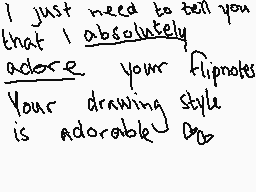 I just need to tell you
that I absolutely
adore your flipnotes
Your drawing style
is adorable